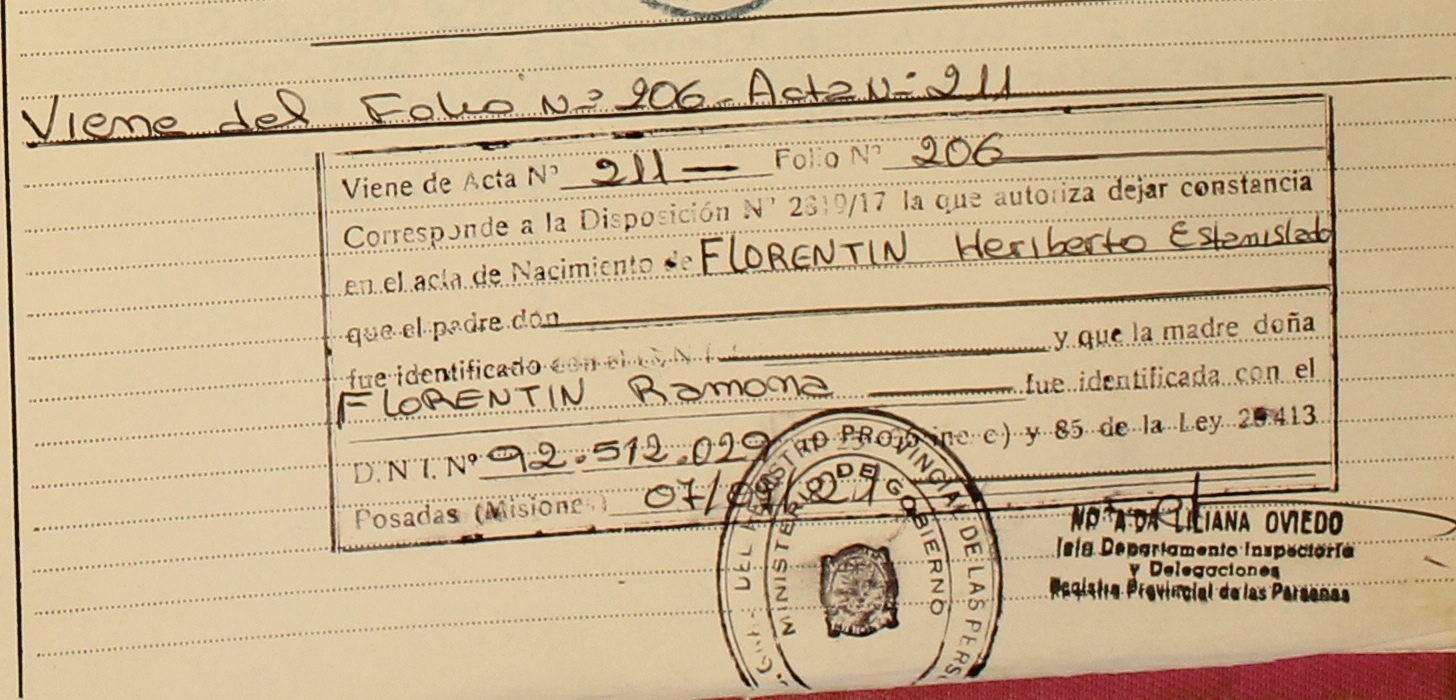 Viene del Folio Nº 206 - Acta Nº 211
Viene de Acta Nº 211 — Folio Nº 206
Corresponde a la Disposición Nº 2819/17 la que autoriza dejar constancia
en el acta de Nacimiento de FLORENTIN Heriberto Estanislado
que el padre don
fue identificado con el D.N.I. y que la madre doña
FLORENTIN Ramona — fue identificada con el
D.N.I. Nº 92.512.029 inc c) y 85 de la Ley 26413
Posadas (Misiones) 07/ /21
DEL REGISTRO PROVINCIAL DE LAS PERS
MINISTERIO DE GOBIERNO
LILIANA OVIEDO
Jefe Departamento Inspectoría
y Delegaciones
Registro Provincial de las Personas